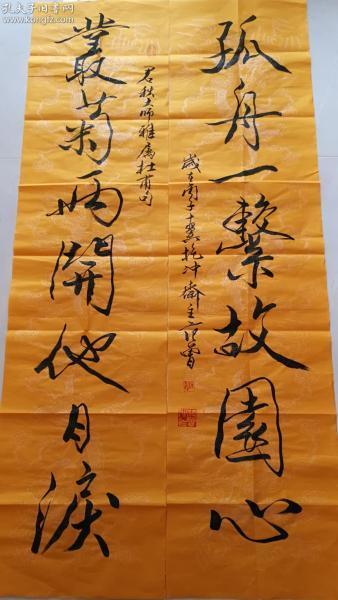 孔夫子旧书网
www.kongfz.com
孤舟一繫故園心
叢菊两開他日淚
君秋大师雅属杜甫句
十翼抱冲斋主范曾